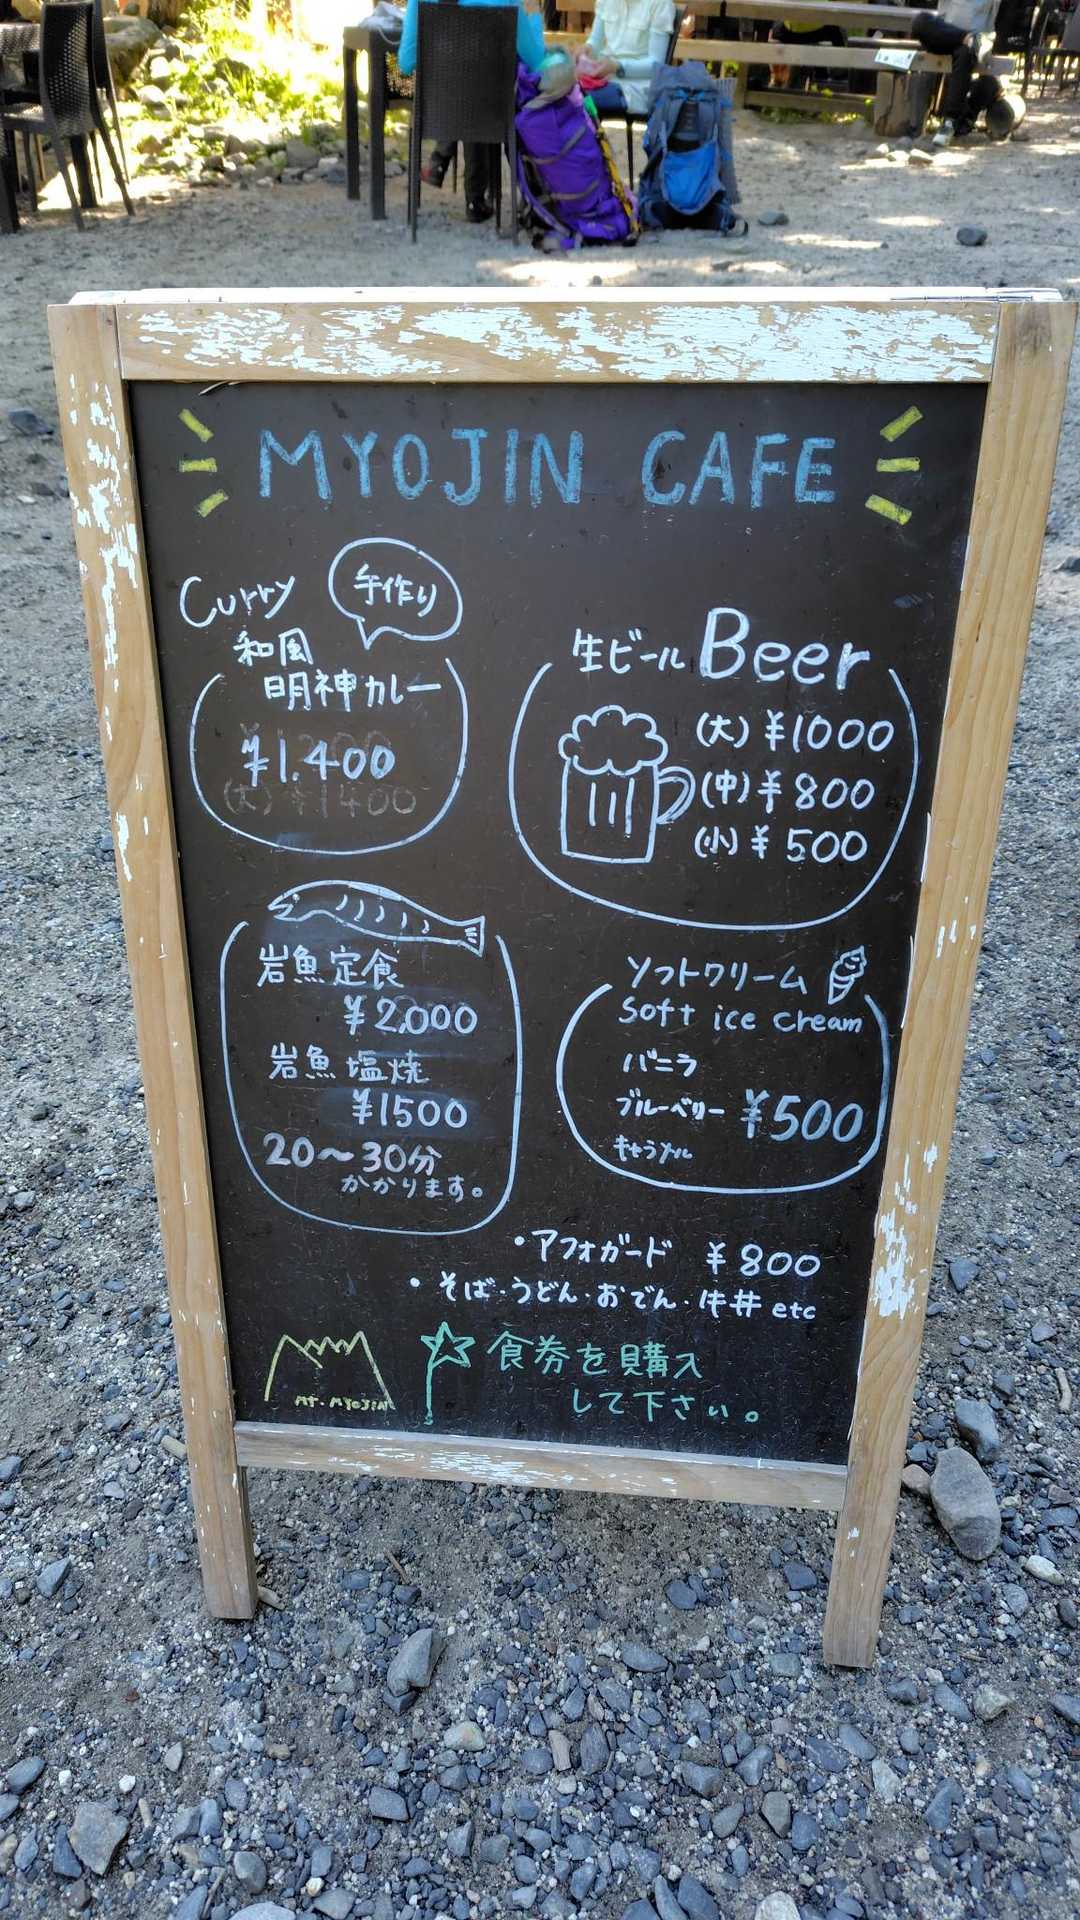 MYOJIN CAFE
Curry
手作り
和風
明神カレー
¥1.400
(大) ¥1400
生ビール Beer
(大) ¥1000
(中) ¥800
(小) ¥500
岩魚定食
¥2,000
岩魚塩焼
¥1500
20〜30分
かかります。
ソフトクリーム
soft ice cream
バニラ
ブルーベリー ¥500
キャラメル
・アフォガード ¥800
・そば・うどん・おでん・牛丼 etc
MT. MYOJIN
食券を購入
して下さい。